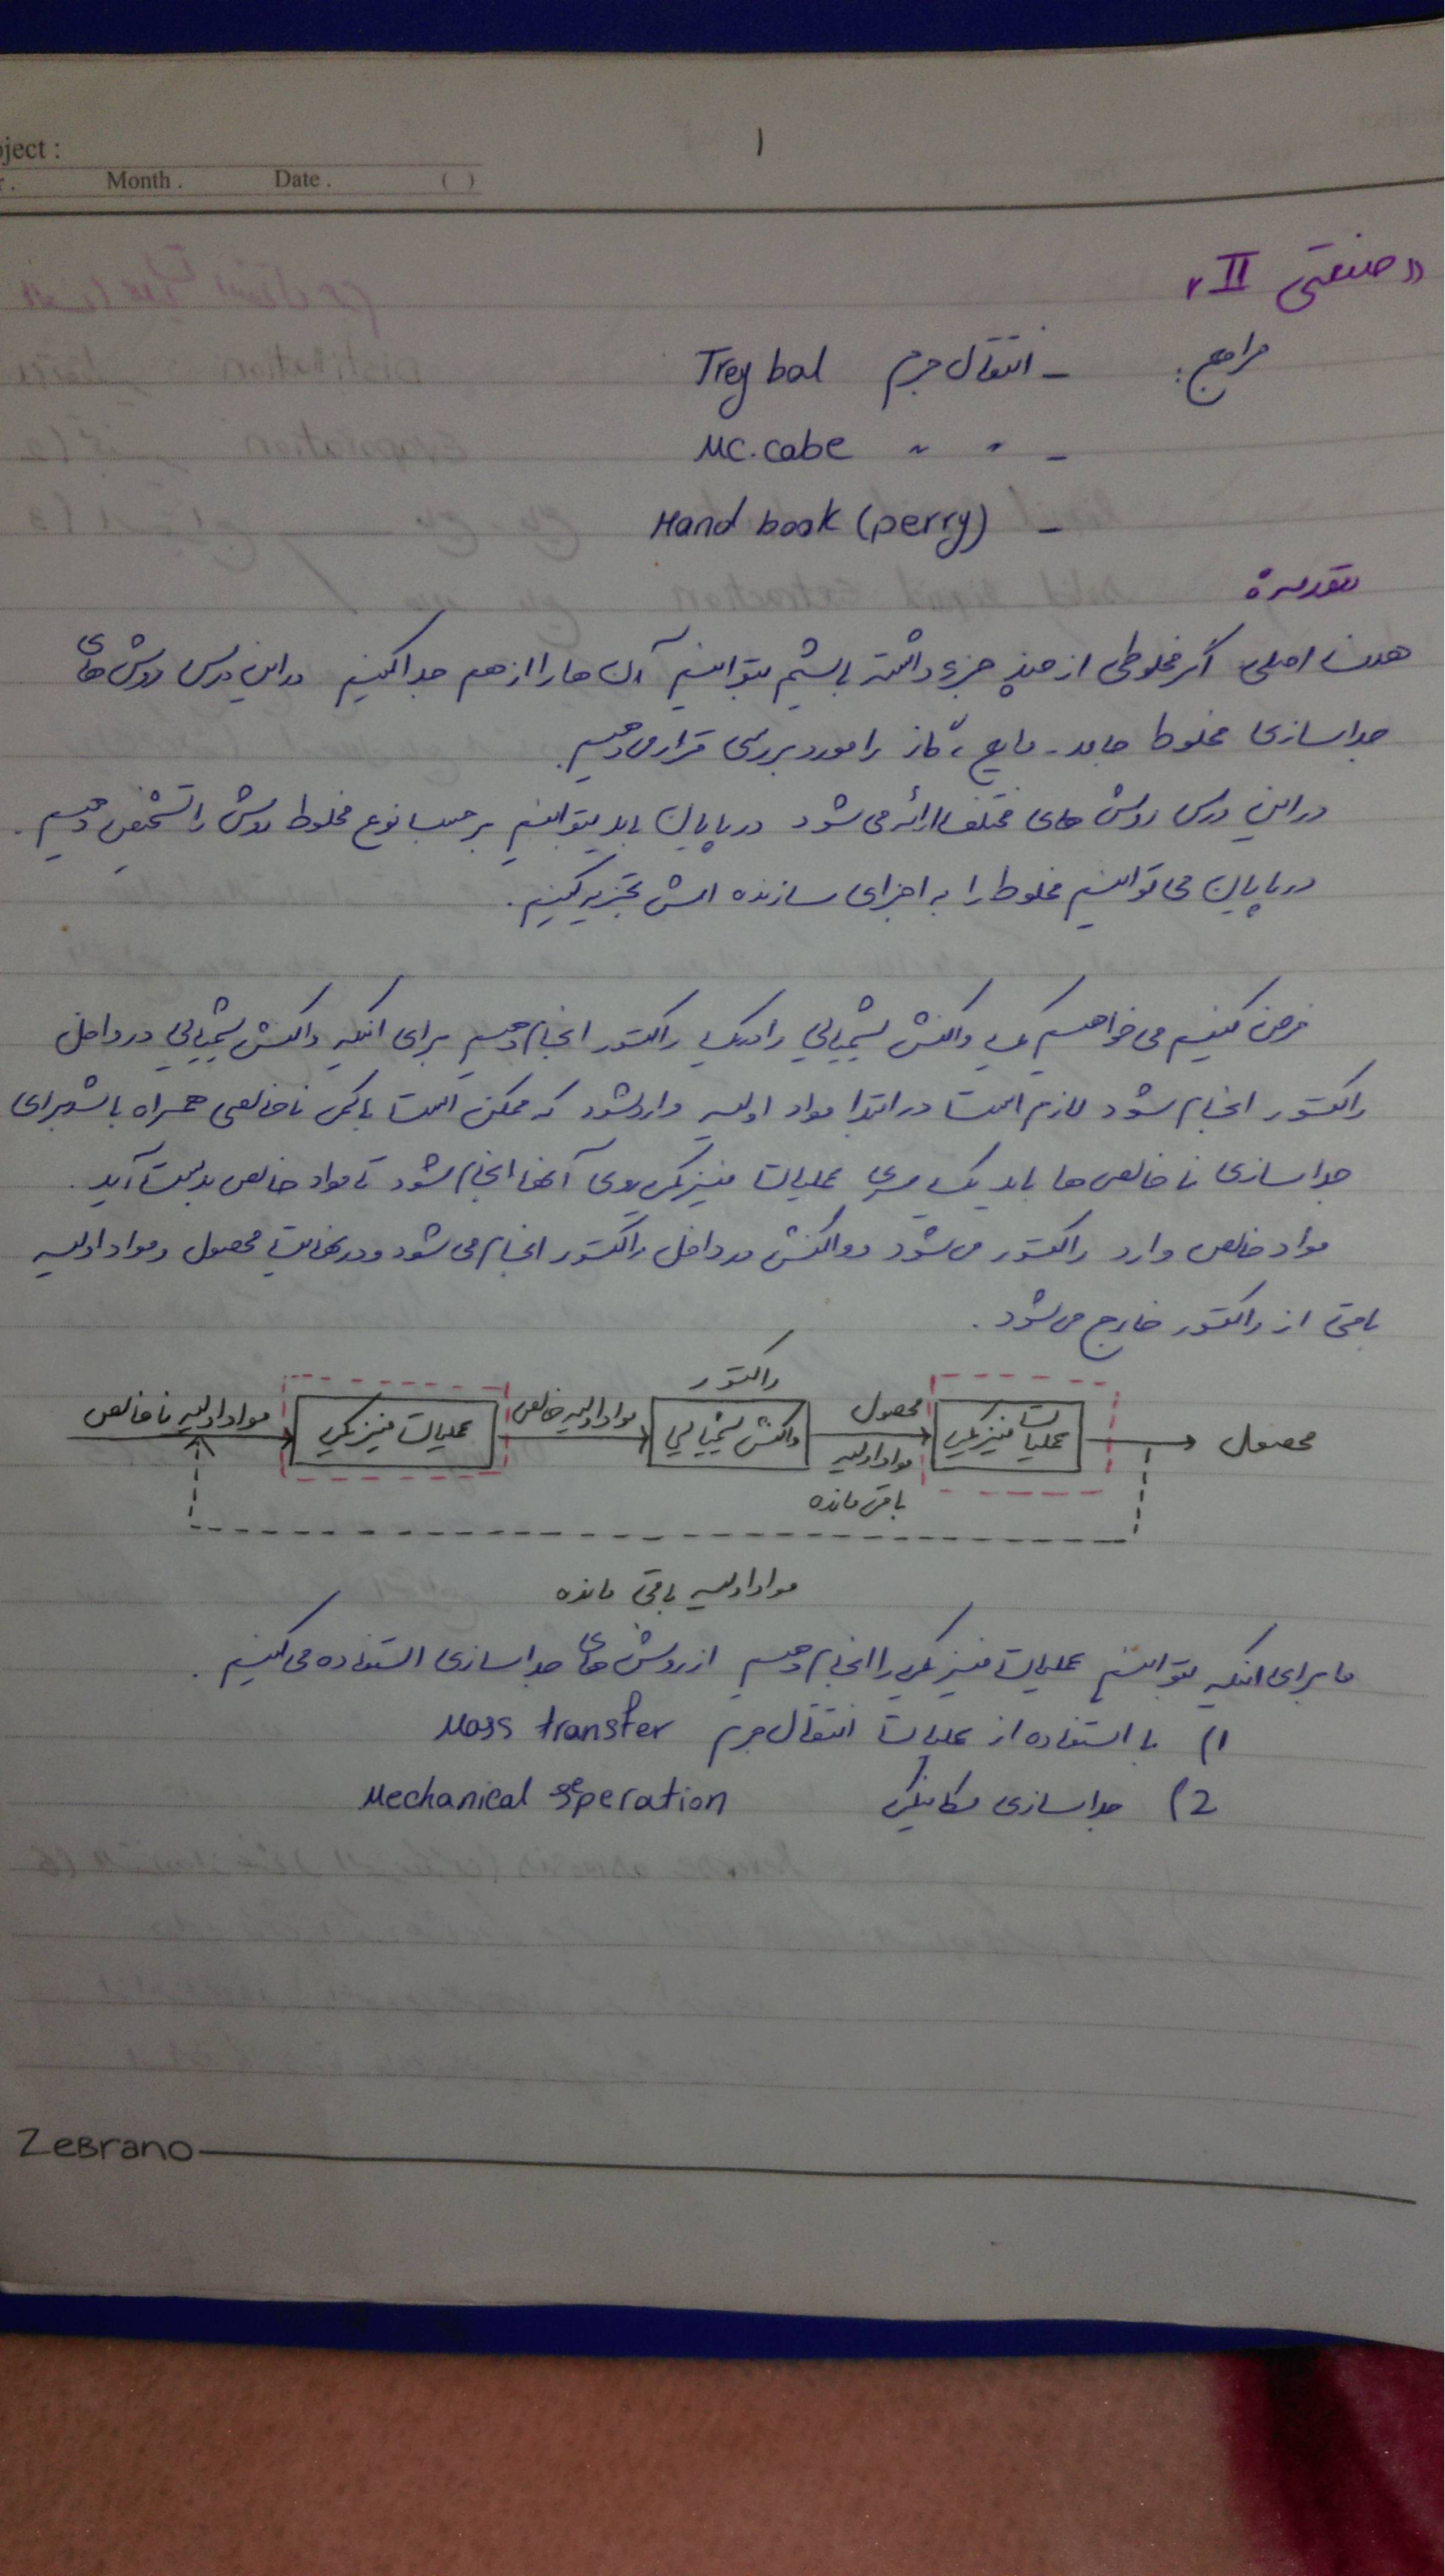 oject :
r . Month . Date . ( )
۱
« صنعتی II »
مراجع : - انتقال جرم Trey bal
- " " Mc.cabe
- Hand book (perry)
مقدمه
هدف اصلی اگر مخلوطی از چند جزء داشته باشیم بتوانیم آن ها را از هم جدا کنیم در این درس روش های
جداسازی مخلوط جامد - مایع ، گاز را مورد بررسی قرار می دهیم .
در این درس روش های مختلف ارائه می شود در پایان باید بتوانیم بر حسب نوع مخلوط روش را تشخیص دهیم .
در پایان می توانیم مخلوط را به اجزای سازنده اش تجزیه کنیم .
فرض کنیم می خواهیم یک واکنش شیمیایی را در یک راکتور انجام دهیم برای اینکه واکنش شیمیایی در داخل
راکتور انجام شود لازم است در ابتدا مواد اولیه وارد شود که ممکن است با کمی ناخالصی همراه باشد برای
جداسازی ناخالصی ها باید یک سری عملیات فیزیکی روی آنها انجام شود تا مواد خالص بدست آید .
مواد خالص وارد راکتور می شود و واکنش در داخل راکتور انجام می شود و در نهایت محصول و مواد اولیه
باقی از راکتور خارج می شود .
راکتور
مواد اولیه ناخالص عملیات فیزیکی مواد اولیه خالص واکنش شیمیایی محصول عملیات فیزیکی محصول
مواد اولیه
باقی مانده
مواد اولیه باقی مانده
ما برای اینکه بتوانیم عملیات فیزیکی را انجام دهیم از روش های جداسازی استفاده می کنیم .
1) با استفاده از عملیات انتقال جرم Mass transfer
2) جداسازی مکانیکی Mechanical seperation
ZeBrano